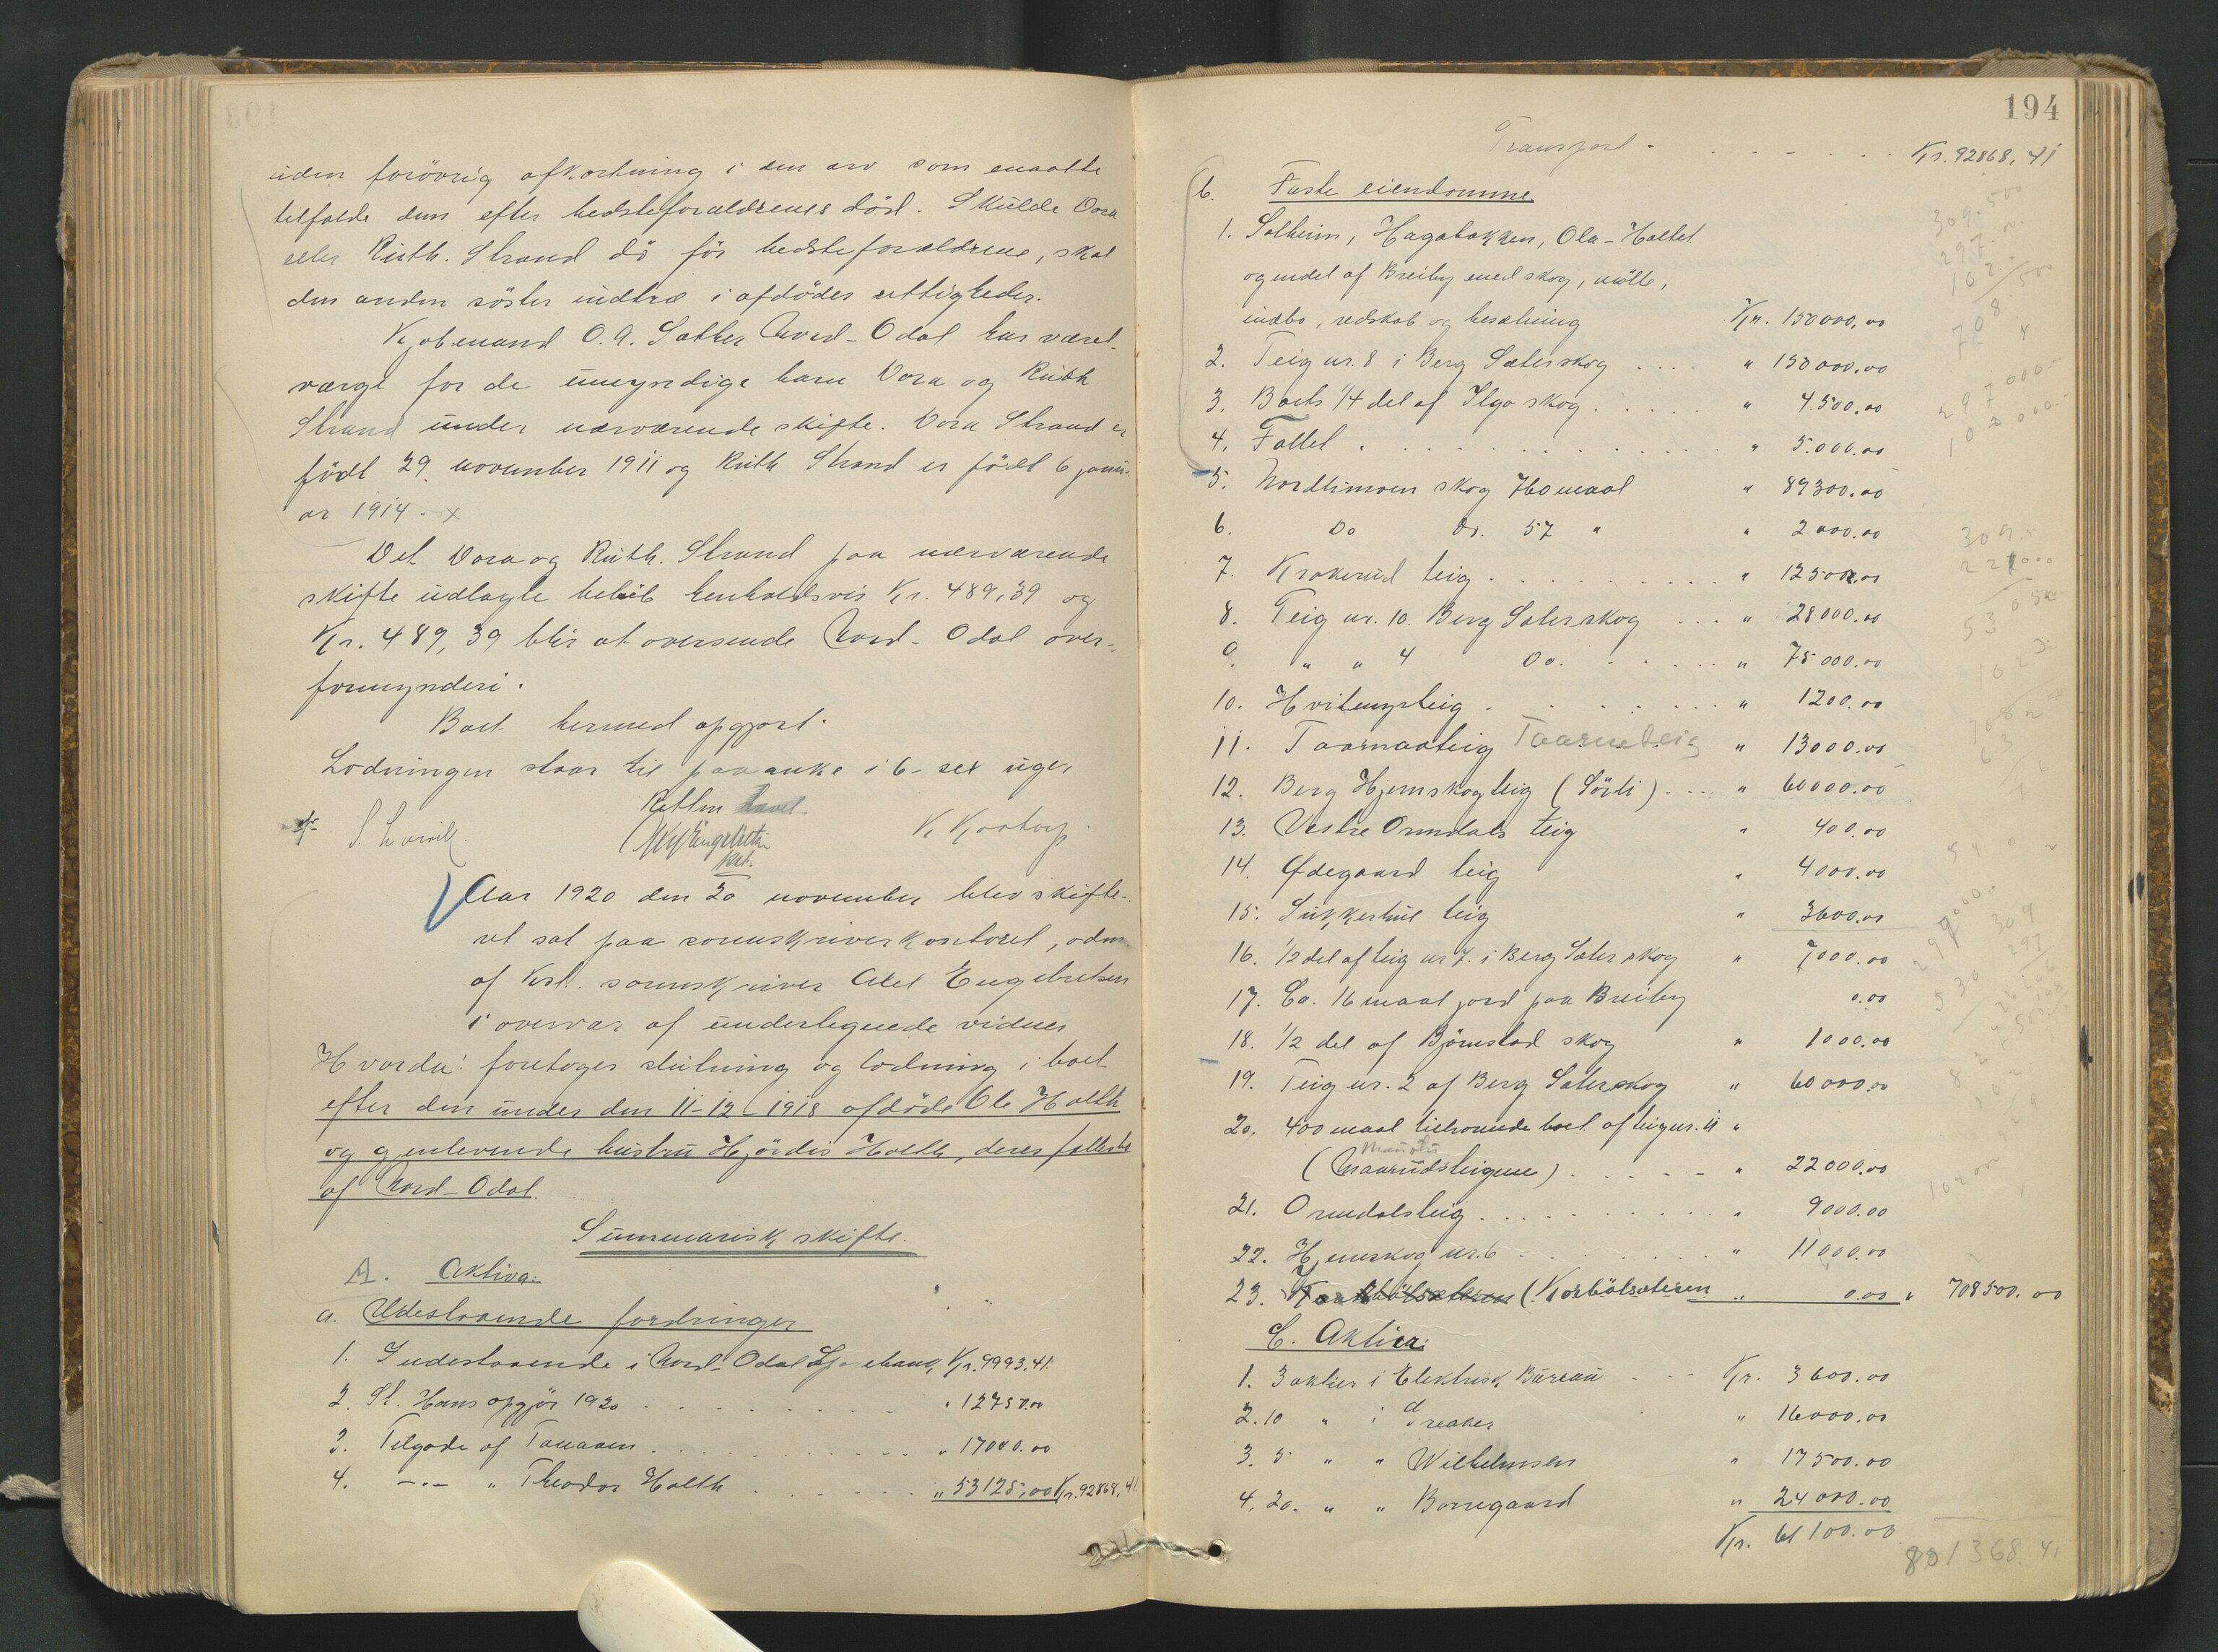 uden forövrig afkortning i den arv som maatte
tilfalde dem efter bedsteforældrenes död. Skulde Dora
eller Ruth Strand dö för bedsteforældrene, skal
den anden söster indtræ i afdödes rettigheder.
Kjøbmand O. A. Sæther Nord-Odal har været
værge for de umyndige barn Dora og Ruth
Strand under nærværende skifte. Dora Strand er
födt 29. november 1911 og Ruth Strand er födt 6 janu-
ar 1914. x
Det Dora og Ruth Strand paa nærværende
skifte udlagte belöb henholdsvis Kr. 489,39 og
Kr. 489,39 blir at oversende Nord-Odal over-
formynderi.
Boet hermed opgjort.
Lodningen staar til paaanke i 6- sex uger
Retten hævet
K Kortorp
Aar 1920 den 20 november blev skifte-
ret sat paa sorenskriverkontoret, adm.
af Kst. sorenskriver Alet Engebretsen
i overvær af undertegnede vidner
Hvorda: foretoges slutning og lodning i boet
efter den under den 11-12-1918 afdöde Ole Holth
og gjenlevende hustru Hjördis Holth, deres fællesbo
af Nord-Odal.
Summarisk skifte.
A. Aktiva.
a. Udestaaende fordringer
1. Indestaaende i Nord-Odal Sparebank Kr. 9993.41.
2. St. Hans opgjör 1920 . . . . " 12750.00
3. Tilgode af Tanaaen . . . . " 17000.00
4. —.— " Theodor Holth . . . . " 53125,00 Kr. 92868,41
194
Transport - . . . . Kr. 92868,41
b. Faste eiendomme.
1. Solheim, Hagabakken, Ola-Holtet
og endel af Breiby med skog, mölle,
indbo, redskab og besætning Kr. 150000,00
2. Teig nr. 8 i Berg Sæterskog . . . . " 150000.00
3. Boets 1/4 del af Ilgo skog . . . . " 4.500.00
4. Fallet . . . . " 5.000.00
5. Nordlimoen skog 760 maal " 89300.00
6. Do Do. 57 " " 2000.00
7. Krokerud teig . . . . " 12500.00
8. Teig nr. 10. Berg Sæterskog . . . " 28000.00
9. " " 4 Do. . . . . " 75000.00
10. Hvitmyrteig . . . . " 1200.00
11. Taarnaateig Taarneteig " 13000.00
12. Berg Hjemskogteig (Sörli) . . . " 60000.00
13. Vestre Orundals teig " 400.00
14. Ødegaard teig " 4000.00
15. Sukkerhul teig " 3600.00
16. 1/2 del af teig nr 7. i Berg Sæterskog " 7000.00
17. Ca. 16 maal jord paa Breiby 0.00
18. 1/2 del af Björnstad skog " 1000.00
19. Teig nr. 2 af Berg Sæterskog " 60000.00
20. 400 maal tilhörende boet af teig nr. 11 "
(Naarudsteigene) . . . . " 22000.00
21. Orundalsteig . . . . " 9000.00
22. Hjemskog nr. 6 . . . . " 11000.00
23. (Korbölsæteren " 0.00 " 708500.00
C. Aktier.
1. 3 aktier i Elektrisk Bureau - - - Kr. 3600.00
2. 10 " i Greaker " 16000.00
3. 5 " " Wilhelmsen " 17500.00
4. 20. " " Borregaard " 24000.00
Kr. 61100.00
801368.41